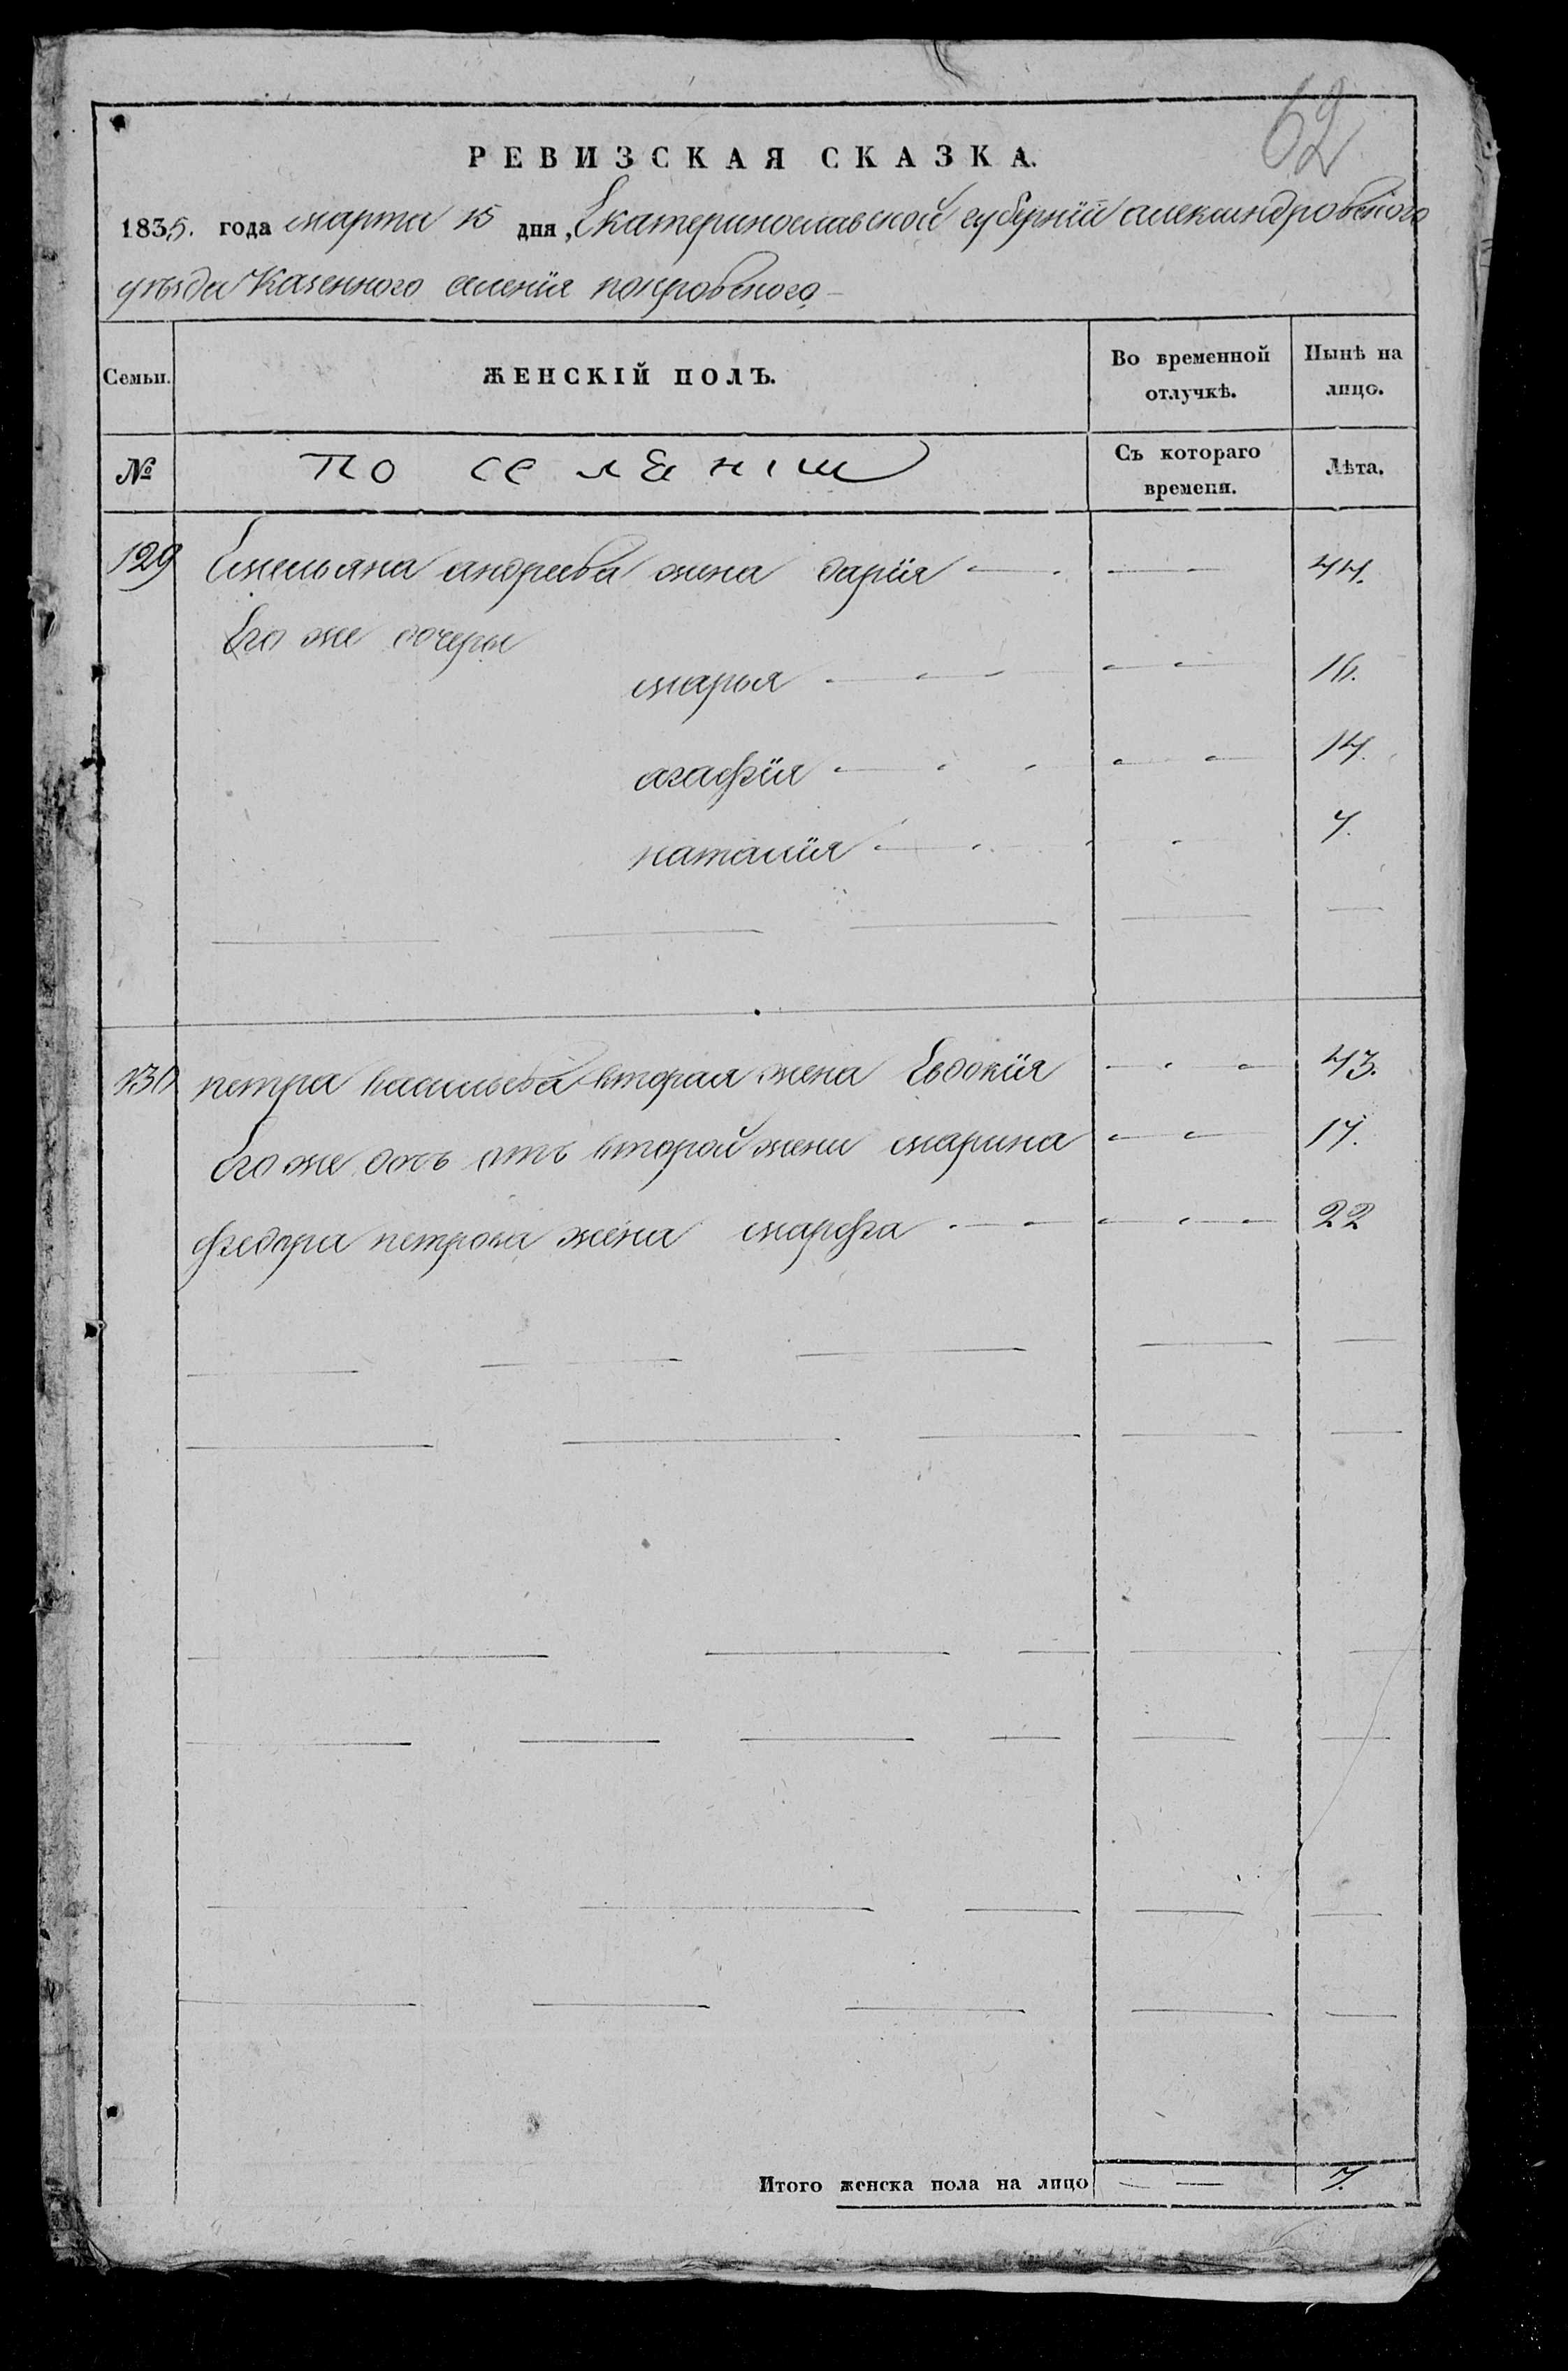 62
РЕВИЗСКАЯ СКАЗКА.
1835. года марта 15 дня, Екатеринославской губерніи александровского
уѣзда казенного селенія покровского
Семьи. ЖЕНСКІЙ ПОЛЪ. Во временной отлучкѣ. Нынѣ на лицо.
№ Съ котораго времени. Лѣта.
129 Емельяна андреева жена дарія 44.
Его же дочеры
марья 16.
агафія 14.
наталія 7.
130 петра васильева вторая жена Евдокія 43.
Его же дочь отъ второй жени марина 17.
федора петрова жена марфа 22
Итого женска пола на лицо 7.